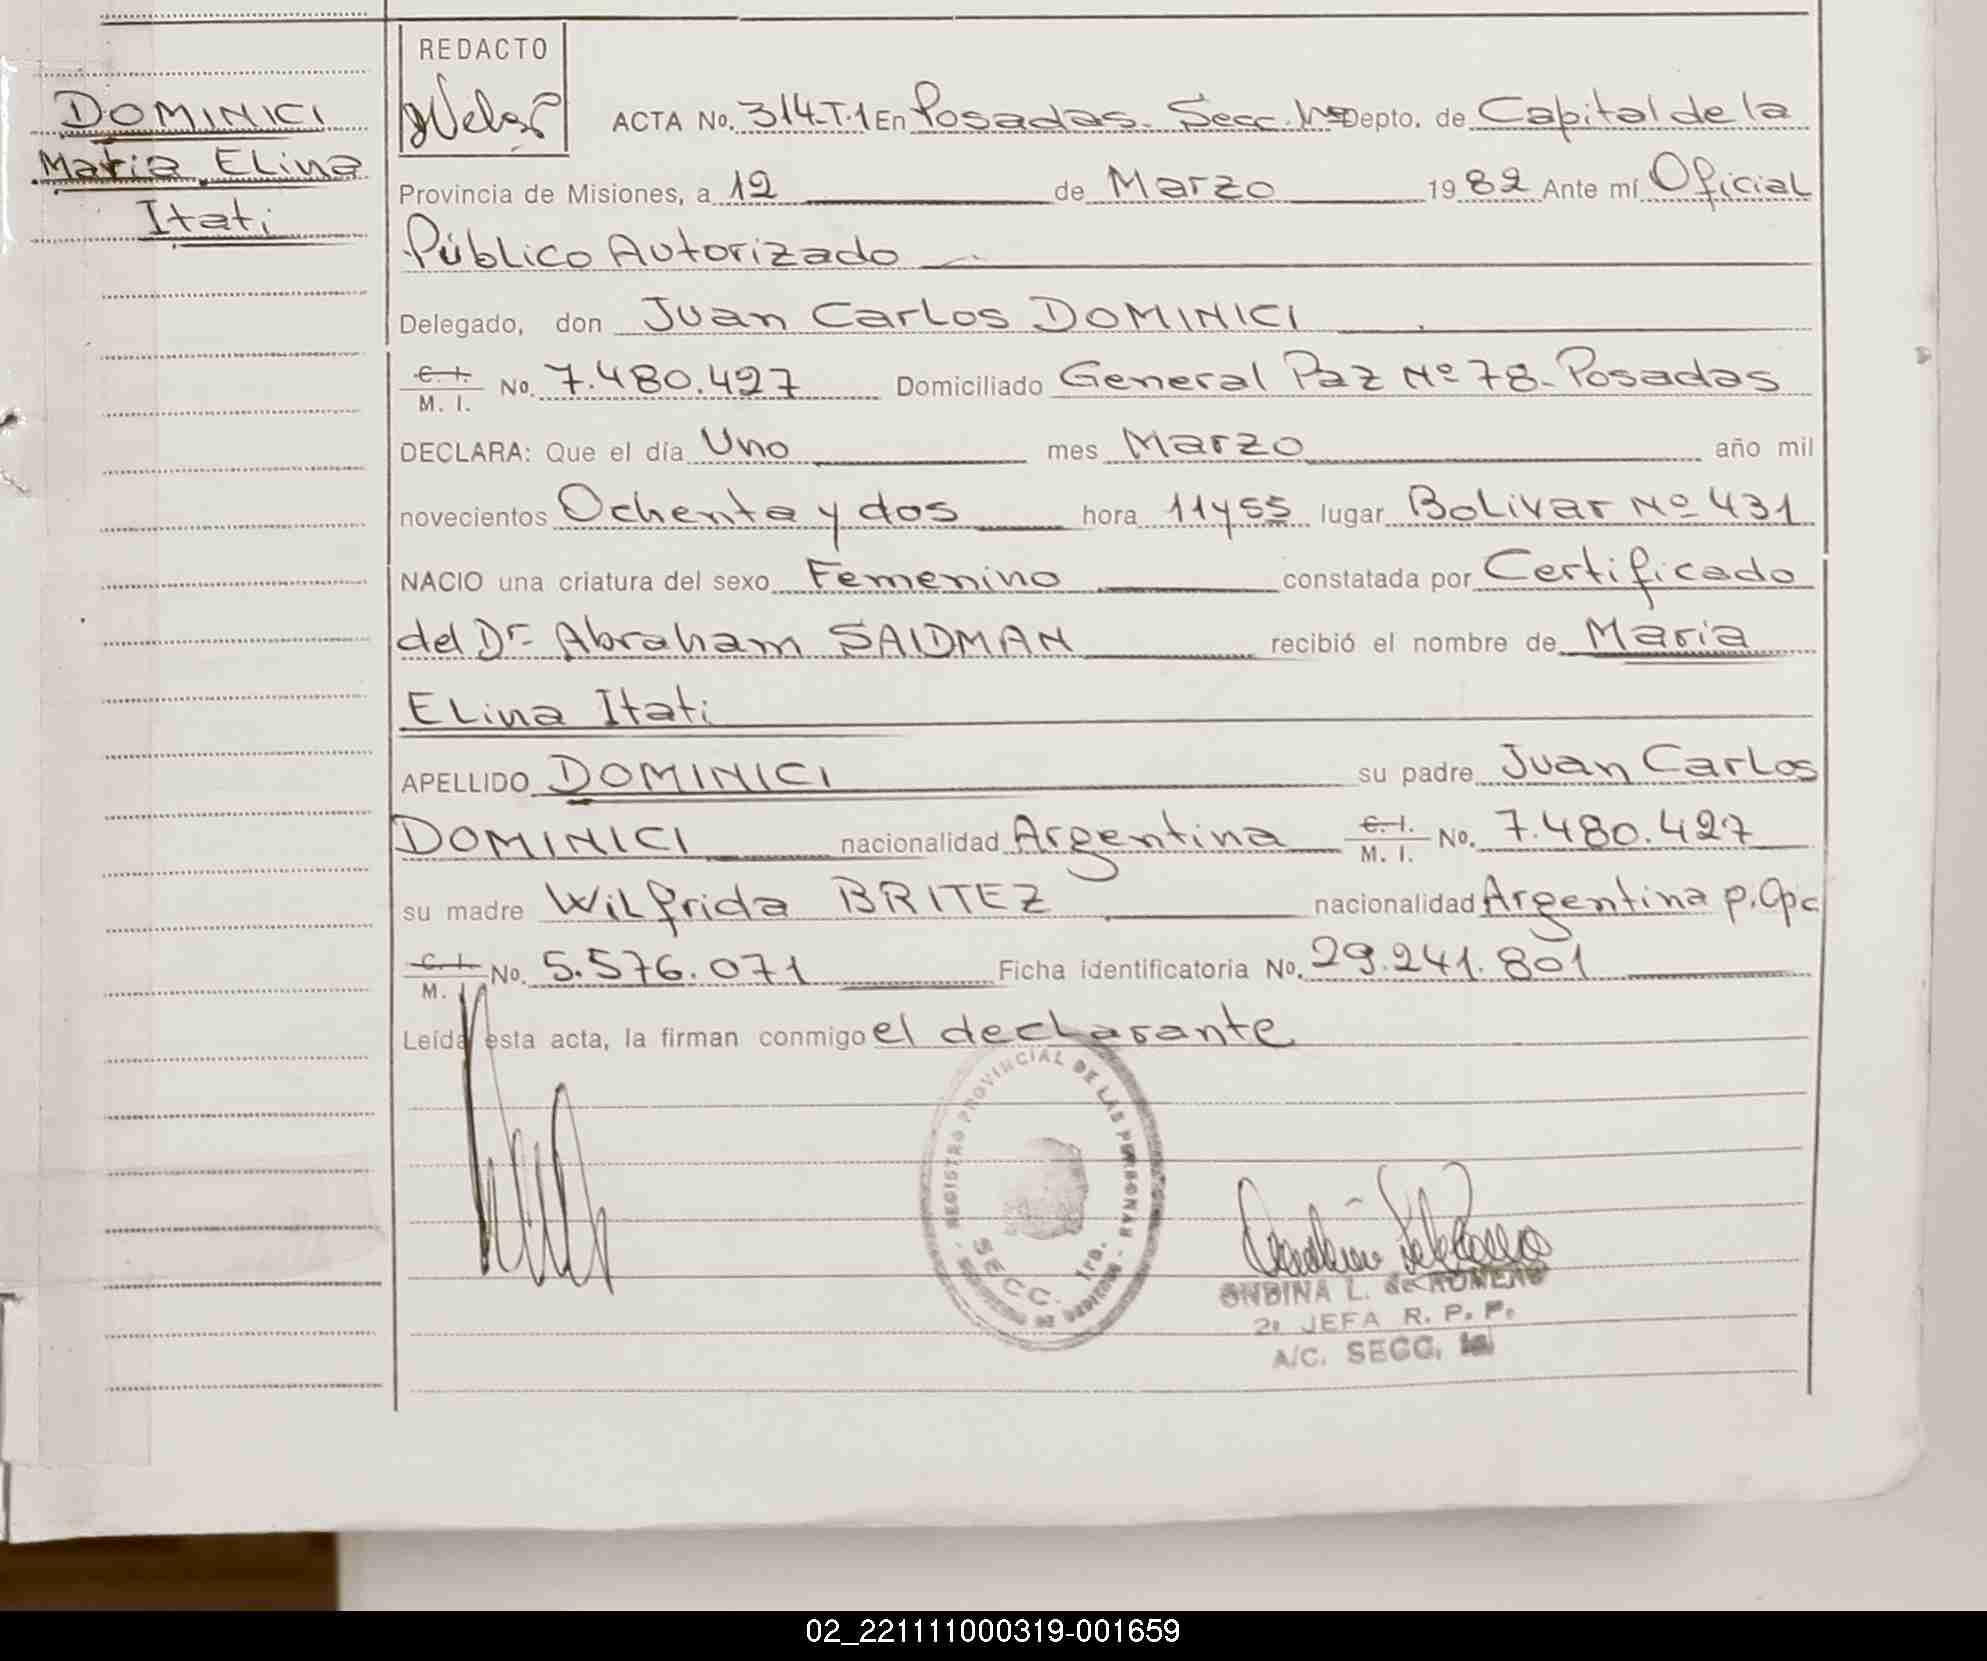 DOMINICI
Maria Elina
Itati
REDACTO
ACTA No. 314-T.1 En Posadas. Secc. 1ra Depto. de Capital de la
Provincia de Misiones, a 12 de Marzo 1982 Ante mí Oficial
Público Autorizado
Delegado, don Juan Carlos DOMINICI
C. I.
M. I. No. 7.480.427 Domiciliado General Paz Nº 78- Posadas
DECLARA: Que el día Uno mes Marzo año mil
novecientos Ochenta y dos hora 11 y 55 lugar Bolivar Nº 431
NACIO una criatura del sexo Femenino constatada por Certificado
del Dr- Abraham SAIDMAN recibió el nombre de Maria
Elina Itati
APELLIDO DOMINICI su padre Juan Carlos
DOMINICI nacionalidad Argentina C. I.
M. I. No. 7.480.427
su madre Wilfrida BRITEZ nacionalidad Argentina p. Opc
C. I.
M. I. No. 5.576.071 Ficha identificatoria No. 29.241.801
Leída esta acta, la firman conmigo el declarante
REGISTRO PROVINCIAL DE LAS PERSONAS
SECC. 1ra.
ONDINA L. de ROMERO
2ª JEFA R. P. P.
A/C. SECC. 1a
02_221111000319-001659